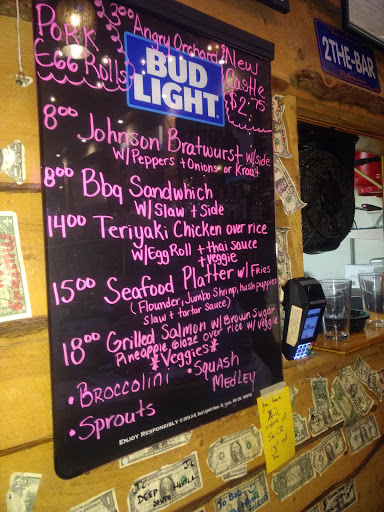 Pork
Egg Rolls
$3.00 Angry Orchard
New
Castle
$2.75
BUD
LIGHT
2THE-BAR
8.00 Johnson Bratwurst w/side
w/Peppers + Onions or Kraut
8.00 Bbq Sandwhich
w/Slaw + Side
14.00 Teriyaki Chicken over rice
w/Egg Roll + thai sauce
+ veggie
15.00 Seafood Platter w/ Fries
(Flounder, Jumbo Shrimp, hush puppies
slaw + tartar sauce)
18.00 Grilled Salmon w/ Brown Sugar
Pineapple Glaze over Rice w/ veggie
*Veggies*
• Broccolini
• Squash
Medley
• Sprouts
ENJOY RESPONSIBLY